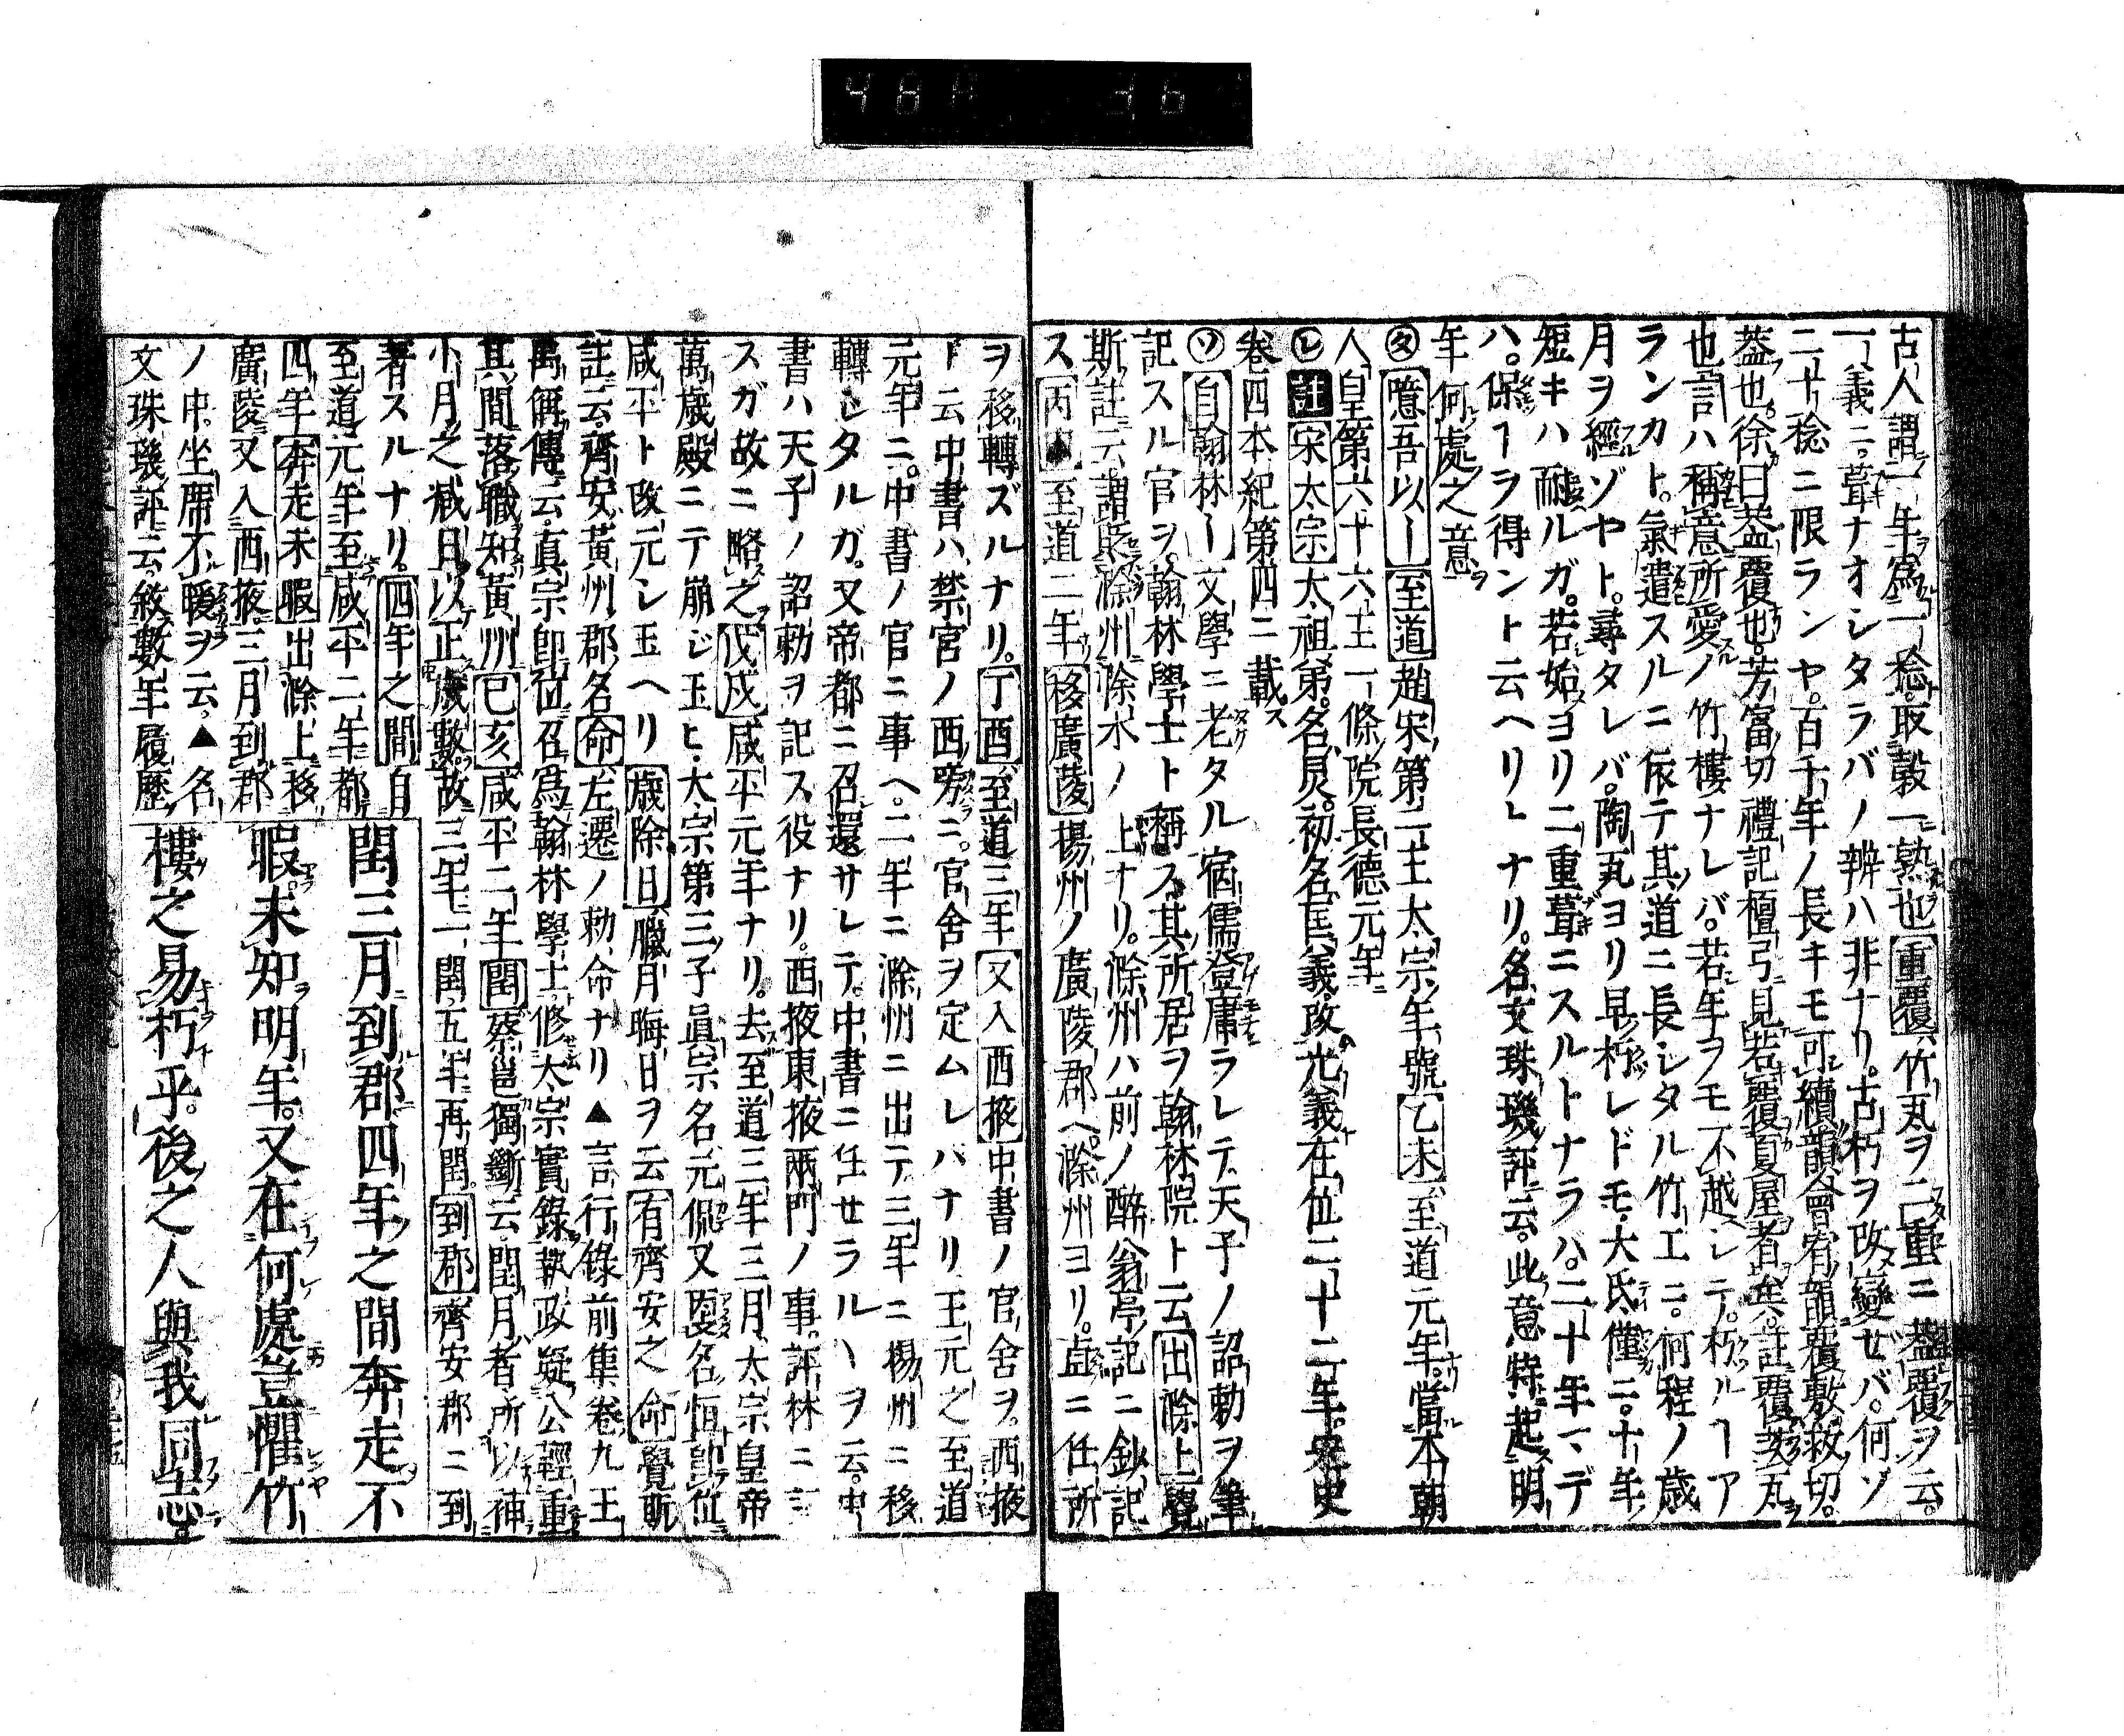 古人謂一年爲一稔取穀一熟也重覆竹瓦ヲ二重ニ葢覆ヲ云。
一義ニ葺ナオシタラバノ辨ハ非ナリ。古朽ヲ改變ゼバ。何ゾ
二十稔ニ限ランヤ。百千年ノ長キモ可續韻會宥韻覆敷救切。
葢也徐曰葢覆也。芳富切禮記檀弓見若覆夏屋者矣。註覆茨瓦
也言ハ稱意所愛ノ竹樓ナレバ。若年ヲモ不越シテ。朽ルヿア
ランカト。氣遣スルニ依テ其道ニ長シタル竹工ニ。何程ノ歳
月ヲ經ゾヤト。尋タレバ。陶瓦ヨリ早朽レドモ。大氐僅ニ十年
短キハ耐ルガ。若始ヨリ二重葺ニスルトナラハ。二十年マデ
ハ。保ヿヲ得ント云ヘリトナリ。名文珠璣評云。此意特起明
年何處之意
タ噫吾以ー至道趙宋第二主太宗ノ年號乙未至道元年。當本朝
人皇第六十六主一條院長德元年
レ註宋太宗太祖弟。名炅。初名匡義。改光義在位二十二年。宋史
卷四本紀第四ニ載ス
ソ自翰林ー文學ニ老タル宿儒登庸ラレテ天子ノ詔勅ヲ筆
記スル官ヲ。翰林學士ト稱ス其所居ヲ翰林院ト云出滁上覺
斯註云。謂貶滁州滁水ノ上ナリ。滁州ハ前ノ醉翁亭記ニ鈔記
ス丙申至道二年移廣陵揚州ノ廣陵郡ヘ滁州ヨリ。此ニ任所
ヲ移轉ズルナリ。丁酉至道三年又入西掖中書ノ官舍ヲ。西掖
ト云中書ハ禁宮ノ西旁ニ。官舍ヲ定ムレバナリ王元之至道
元年ニ。中書ノ官ニ事ヘ。二年ニ滁州ニ出テ三年ニ楊州ニ移
轉シタルガ。又帝都ニ召還サレテ。中書ニ任セラルヽヲ云。中
書ハ天子ノ詔勅ヲ記ス役ナリ。西掖東掖兩門ノ事。評林ニ言
スガ故ニ略之戊戌咸平元年ナリ。去至道三年三月太宗皇帝
萬歳殿ニテ崩ジ玉ヒ。大宗第三子眞宗名元侃又更名恒卽位
咸平ト改元シ玉ヘリ歳除日臘月晦日ヲ云有齊安之命覺斯
註云齊安黃州郡名命左遷ノ勅命ナリ▲言行錄前集卷九王
禹偁傳云眞宗卽位召爲翰林學士修大宗實錄執政疑公輕重
其間落職知黃州已亥咸平二年閏蔡邕獨斷云。閏月者所以補
小月之減日以正歳數故三年一閏五年再閏到郡齊安郡ニ到
著スルナリ。四年之間自
至道元年至咸平二年都
四年奔走未暇出滁上移
廣陵又入西掖三月到郡
ノ中。坐席不暖ヲ云▲名
文珠璣評云。敘數年履歷
閏三月到郡四年之間奔走不
暇。未知明年。又在何處豈懼竹
樓之易朽乎。後之人與我同志。